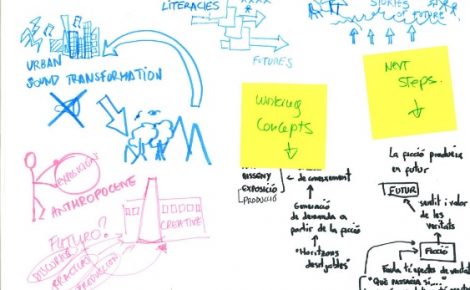 LITERACIES
FUTURES
STORIES
OF FUTURE
URBAN
SOUND TRANSFORMATION
EXPOSICIÓN
ANTHROPOCENE
CREATIVE
FUTURO?
DISCURSO
PRACTICAS
PRODUCCION
Working
Concepts
NEXT
Steps.
DISSENY
de coneixement
EXPOSICIÓ
PRODUCCIÓ
Generació
de demanda a
partir de la ficció
"Horitzons
desitjables"
La ficció produeix
en futur
FUTUR
sentit i valor
de les
veritats
FICCIÓ
Fonda té efectes de veritat
"QUÈ PASSARIA SI...